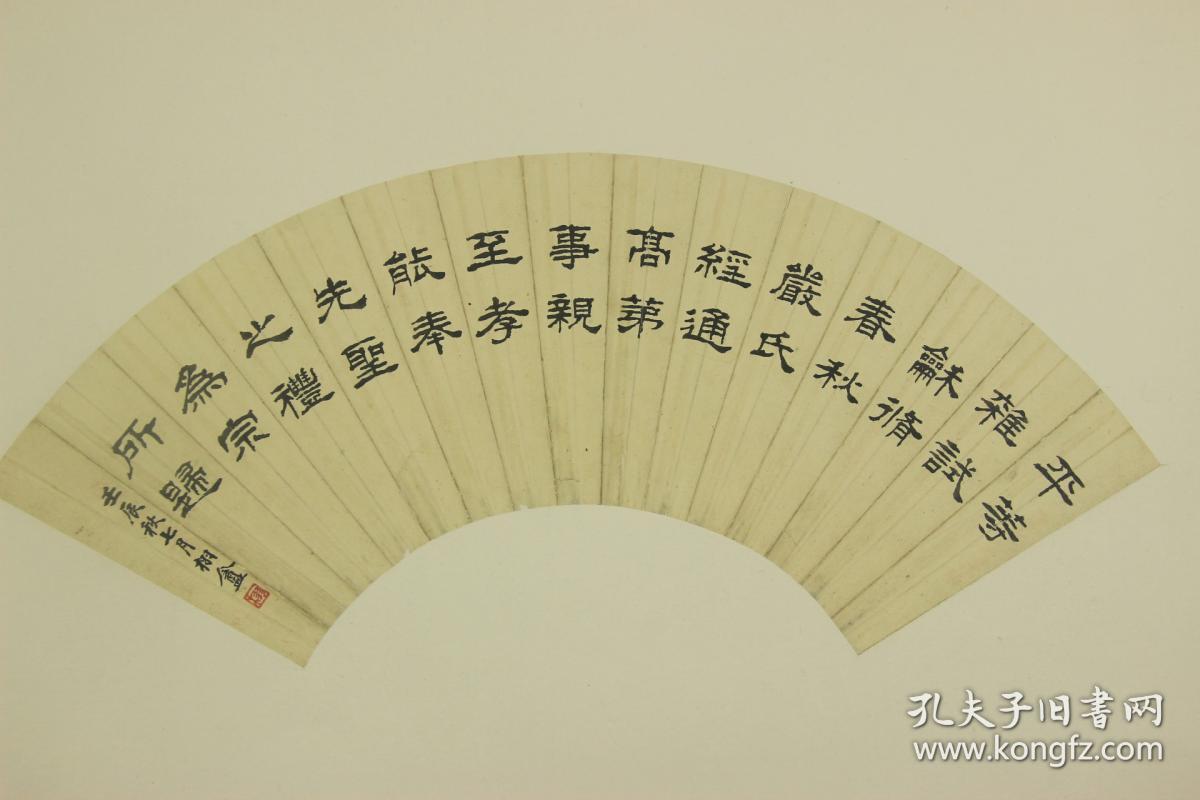 平等
雜試
龢脩
春秋
嚴氏
經通
髙苐
事親
至孝
能奉
先聖
之禮
為宗
所歸
壬辰秋七月栩盦
孔夫子旧書网
www.kongfz.com